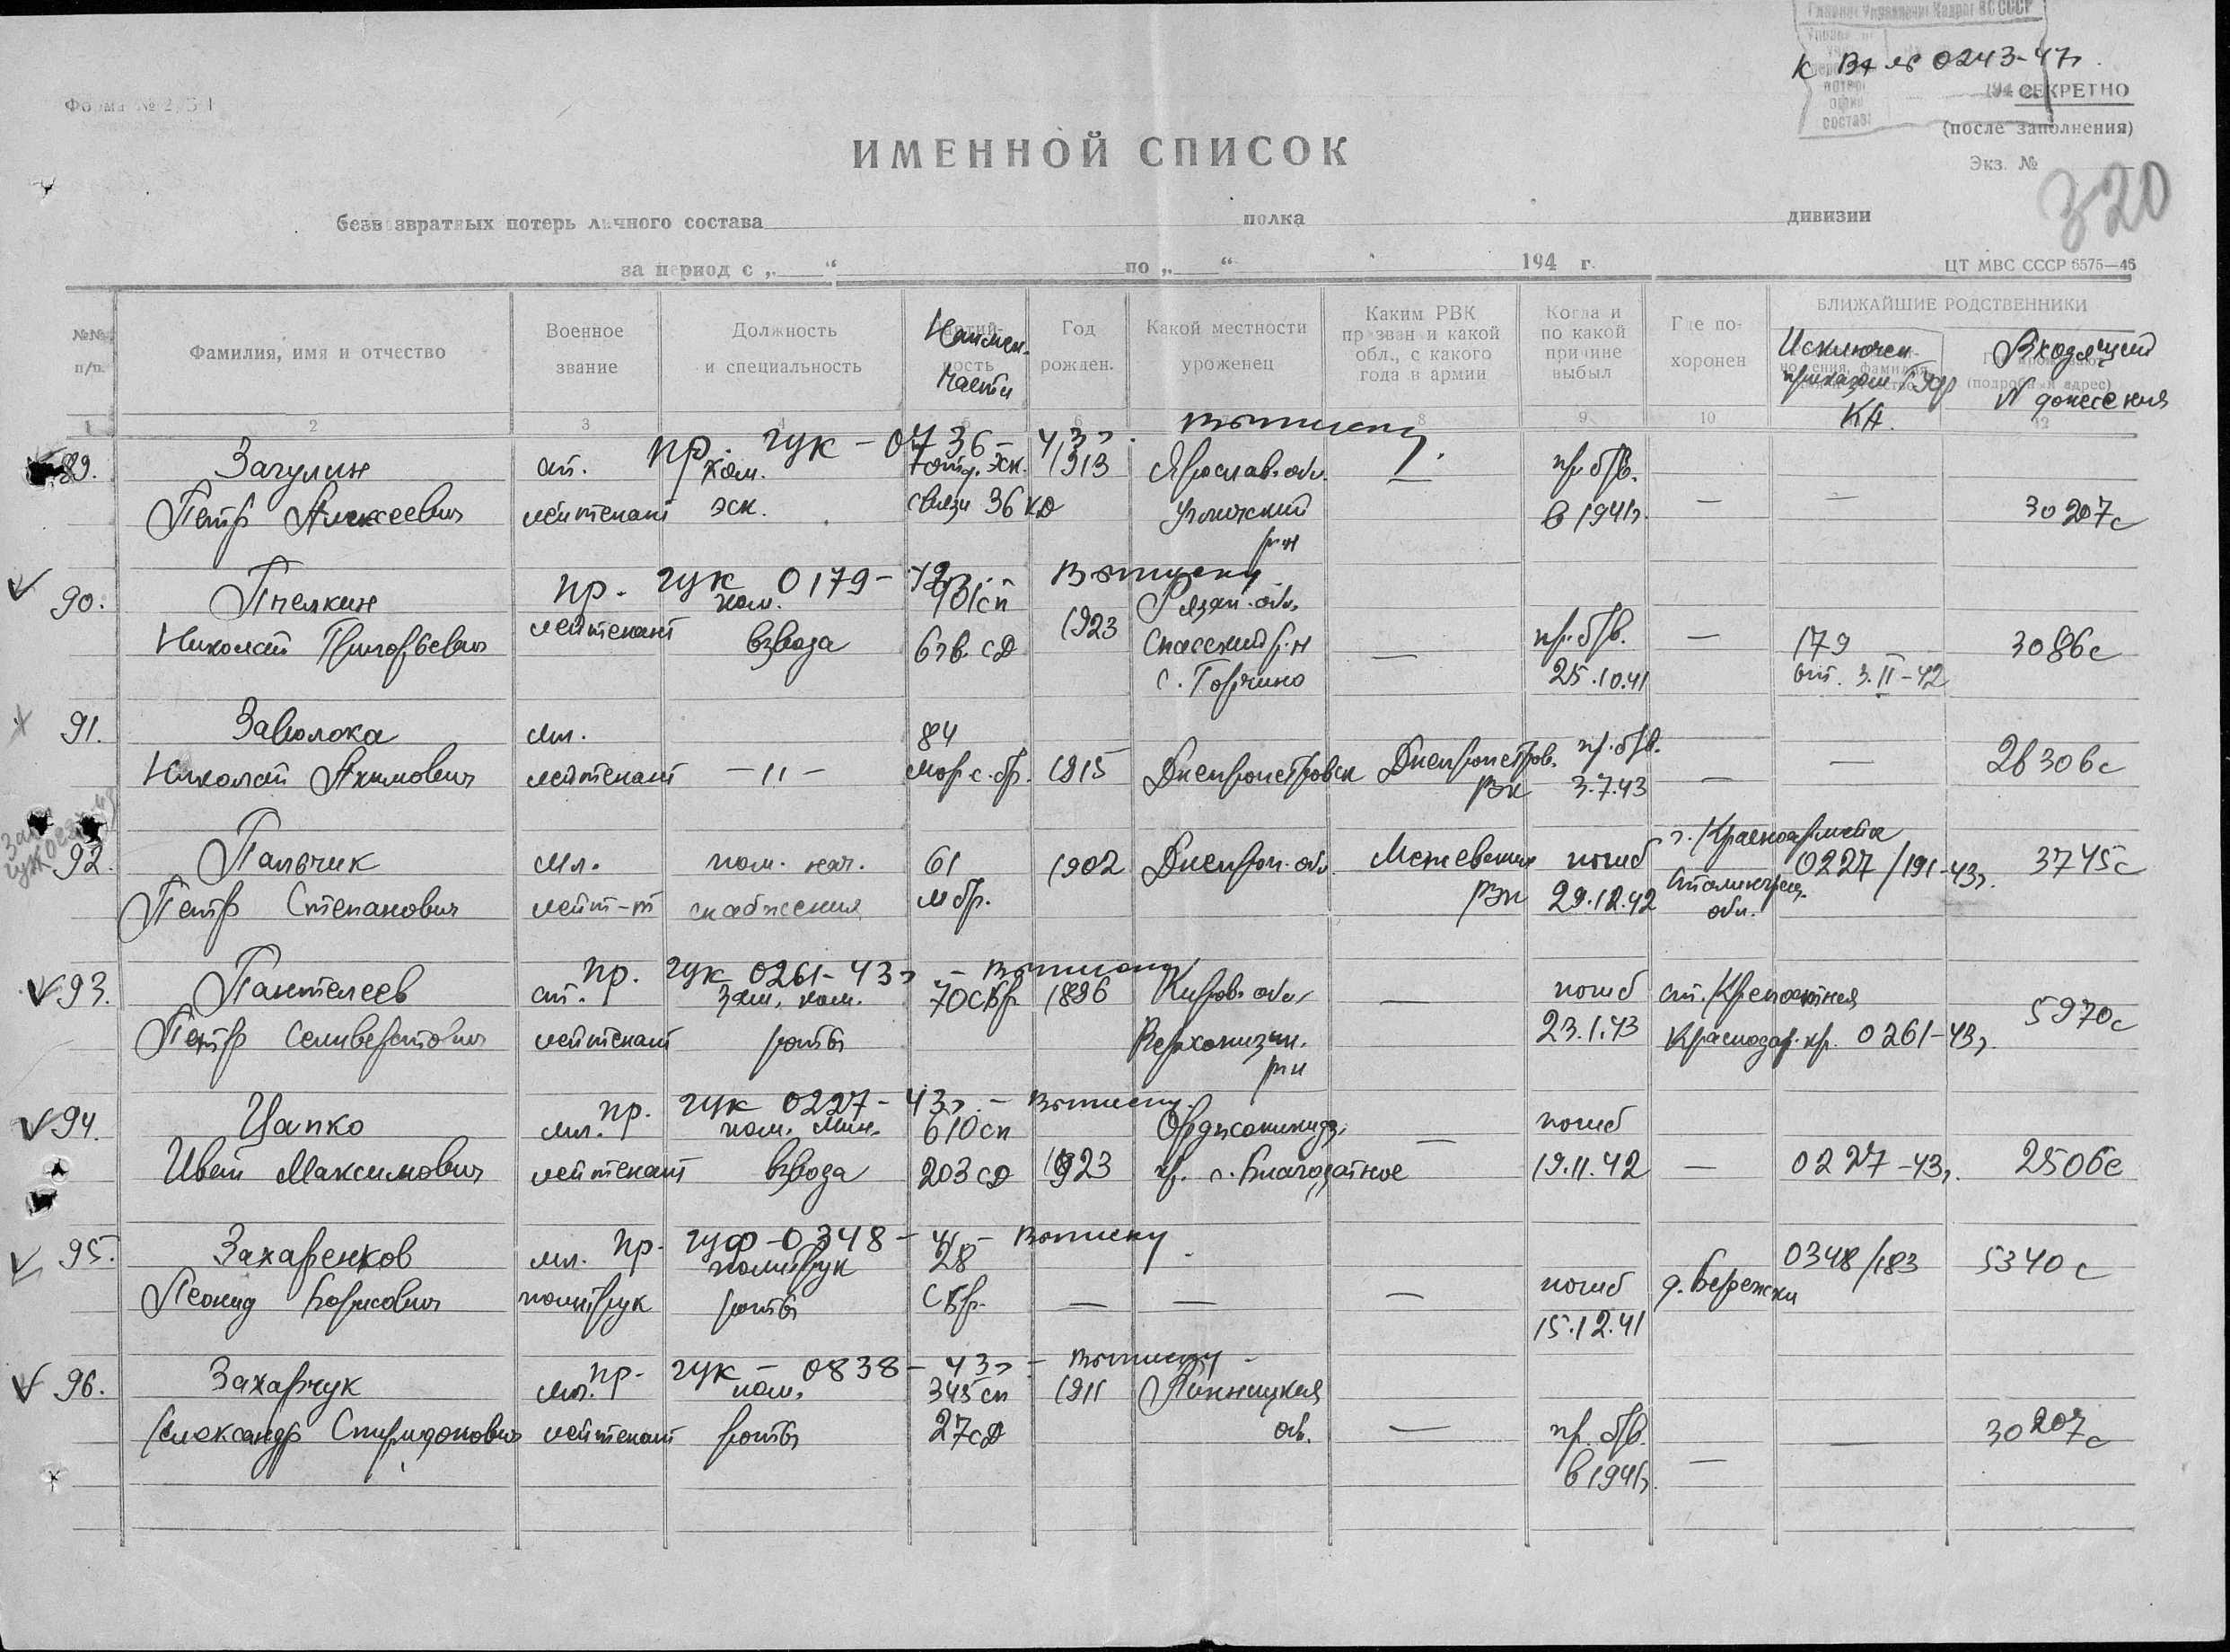 Главное Управление Кадров ВС СССР
к Вх № 0243-47г.
Форма № 2
СЕКРЕТНО
(после заполнения)
Экз. №
320
ИМЕННОЙ СПИСОК
безвозвратных потерь личного состава полка дивизии
за период с „ “ по „ “ 194 г.
ЦТ МВС СССР 6575—46
№№ п/п.
Фамилия, имя и отчество
Военное звание
Должность и специальность
Наимен. части
Год рожден.
Какой местности уроженец
Каким РВК призван и какой обл., с какого года в армии
Когда и по какой причине выбыл
Где похоронен
БЛИЖАЙШИЕ РОДСТВЕННИКИ
Исключен приказом КА.
Входящий № донесения
1 2 3 4 5 6 7 8 9 10 12
пр. гук - 0736 - 43г. выписку
89. Загулин ст. ком. 7 отд. эск. 1913 Ярослав. обл. — пр. б/в.
Петр Алексеевич лейтенант эск. связи 36 кд Угличский в 1941г. — — 30207с
р-н
пр. гук 0179- выписку
90. Пчелкин ком. 701 сп Рязан. обл.
Николай Григорьевич лейтенант взвода 6 гв. сд 1923 Спасский р-н — пр. б/в. — 179 3086с
с. Горчино 25.10.41 от. 3.II-42
91. Заволока мл. 84 пр. б/в.
Николай Акимович лейтенант —"— мор. с. бр. 1915 Днепропетровск Днепропетров. РВК 3.7.43 — — 26306с
92. Пальчик мл. пом. нач. 61 1902 Днепроп. обл. Межевским погиб г. Красноармейск 0227/191-43г. 3745с
Петр Степанович лейт-т снабжения мбр. РВК 29.12.42 обл.
пр. гук 0261-43г - выписку
93. Пантелеев ст. зам. ком. 70 сбр 1896 Киров. обл. — погиб ст. Крепостная
Петр Селиверстович лейтенант роты 23.1.43 Краснодар. кр. 0261-43г. 5970с
р-н
пр. гук 0227-43г. - выписку
94. Цапко мл. ком. мин. 610 сп Орджоникидз. — погиб
Иван Максимович лейтенант взвода 203 сд 1923 кр. с. Благодатное 19.11.42 — 0227-43г. 2506с
пр. гуф-0348- 41 - выписку
95. Захаренков мл. политрук 28 0348/183 5340с
Леонид Борисович политрук роты сбр. — — — погиб д. Бережки
15.12.41
пр- гук - 0838 - 43г - выписку
96. Захарчук мл. ком. 345 сп 1911 Винницкая
Александр Спиридонович лейтенант роты 27 сд обл. — пр. б/в. — 30207с
в 1941г. —